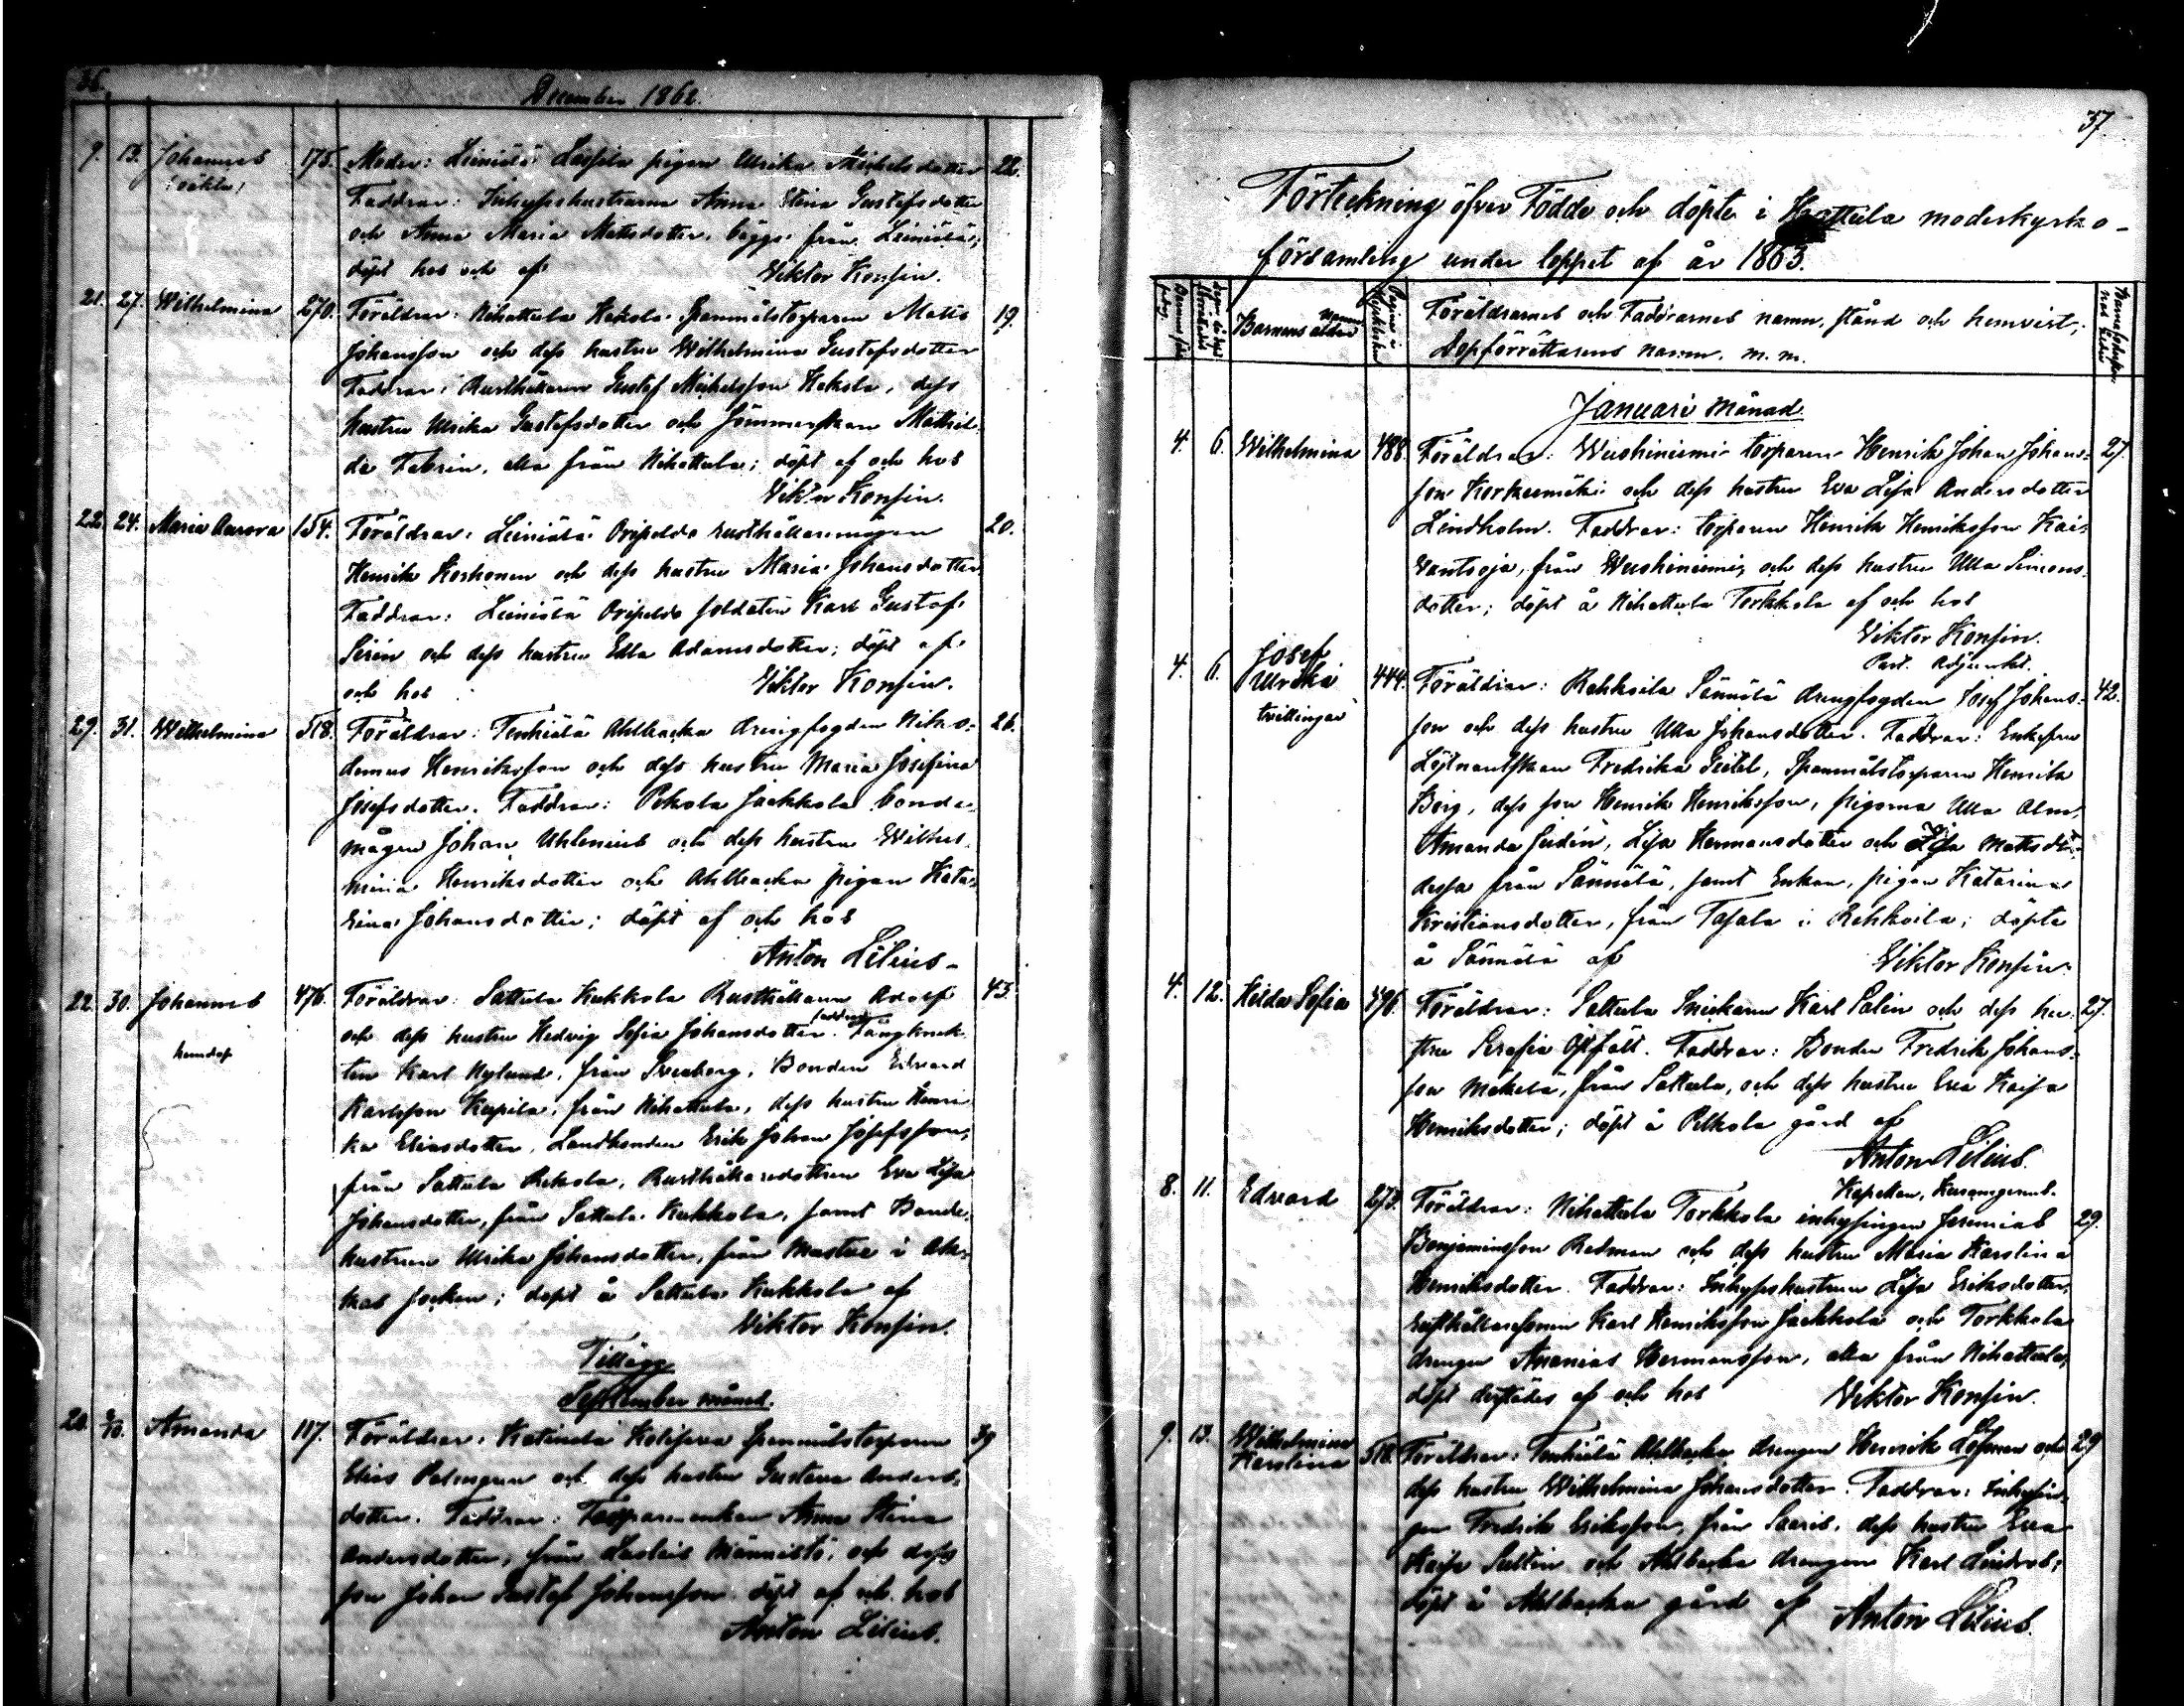 36.
December 1862.
9. 13. Johannes 175. Moder: Leiniälä Laßila pigan Ulrika Michelsdotter 22.
(oäkta) Faddrar: Inhyseshustrurna Anna Stina Gustafsdotter
och Anna Maria Mattsdotter, bägge från Leiniälä;
döpt hos och af Viktor Konsin.
21. 27. Wilhelmina 270. Föräldrar: Nihattula Kakola Spanmålstorparen Matts 19.
Johansson och dess hustru Wilhelmina Gustafsdotter
Faddrar: Rusthållaren Gustaf Michelsson Kakola, dess
hustru Ulrika Gustafsdotter och Sömmerskan Mathil-
da Fabrin, alla från Nihattula; döpt af och hos
Viktor Konsin.
22. 24. Maria Aurora 154. Föräldrar: Leiniälä Oripeldo rusthållaremågen 20.
Henrik Korhonen och dess hustru Maria Johansdotter
Faddrar: Leiniälä Oripeldo soldaten Karl Gustaf
Sirén och dess hustru Ulla Adamsdotter; döpt af
och hos Viktor Konsin.
29. 31. Wilhelmina 518. Föräldrar: Tenhiälä Ahlbacka drängfogden Niko- 26.
demus Henriksson och dess hustru Maria Josefina
Josefsdotter. Faddrar: Pekola Jackkola bonde-
mågen Johan Uhlenius och dess hustru Wilhel-
mina Henriksdotter och Ahlbacka pigan Kata-
rina Johansdotter; döpt af och hos
Anton Lilius
22. 30. Johannes 476. Föräldrar: Sattula Kukkola Rusthållaren Adolf 43.
och dess hustru Hedvig Sofia Johansdotter. Faddrar: Fångknek-
hemdop ten Karl Nylund, från Sveaborg, Bonden Edvard
Karlsson Kupila, från Nihattula, dess hustru Henri-
ka Eliasdotter, Landbonden Erik Johan Josefsson,
från Sattula Rekola, Rusthållaredottren Eva Lisa
Johansdotter, från Sattula Kukkola, samt Bonde-
hustrun Ulrika Johansdotter, från Mustue i Ak-
kas socken; döpt å Sattula Kukkola af
Viktor Konsin.
Tillägg
September månad.
20. Amanda 117. Föräldrar: Katinala Spanmålstorparen 39
Elias Palmgren och dess hustru Gustava Anders-
dotter. Faddrar: Torpareenkan Anna Stina
Andersdotter, från Männistö, och dess
son Johan Gustaf Johansson döpt af och hos
Anton Lilius.
37
Förteckning öfver Födde och döpte i Hattula moderkyrko-
församling under loppet af år 1863.
Barnens namn Föräldrarnes och Faddrarnes namn, stånd och hemvist;
Dopförrättarens namn. m. m.
Januari månad.
4. 6. Wilhelmina 488. Föräldrar: Wuohiniemi torparen Henrik Johan Johans- 27.
son Korkeemäki och dess hustru Eva Lisa Andersdotter
Lindholm. Faddrar: torparen Henrik Henriksson Kai-
vantooja, från Wuohiniemi, och dess hustru Ulla Simons-
dotter; döpt å Nihattula Torkkola af och hos
Viktor Konsin.
Past. Adjunkt.
4. 6. Josef
Ulrika 444. Föräldrar: Rahkoila Sännölä drängfogden Josef Johans- 42.
tvillingar son och dess hustru Ulla Johansdotter. Faddrar: Enkefru
Löjtnantskan Fredrika Geitel, Spanmålstorparen Henrik
Borg, dess son Henrik Henriksson, pigorna Ulla Alm,
Amanda Judin, Lisa Hermansdotter och Lisa Mattsdtr,
dessa från Sännölä, samt Enkan, pigan Katarina
Kristiansdotter, från Tasala i Rahkoila; döpta
å Sännölä af Viktor Konsin.
4. 12. Hilda Sofia 496. Föräldrar: Sattula Snickaren Karl Salin och dess hu- 27.
stru Serafia Öhfält. Faddrar: Bonden Fredrik Johans-
son Mokela, från Sattula, och dess hustru Eva Kaisa
Henriksdotter; döpt å Pelkola gård af
Anton Lilius.
Kapellan, Kurangerme.
8. 11. Edvard 273. Föräldrar: Nihattula Torkkola inhysingen Jeremias 29.
Benjaminsson Redman och dess hustru Maria Karolina
Henriksdotter. Faddrar: Inhyseshustrun Lisa Eriksdotter,
rusthållaresonen Karl Henriksson Jackkola och Torkkola
drängen Ananias Hermansson, alla från Nihattula;
döpt derstädes af och hos Viktor Konsin.
9. 13. Wilhelmina
Karolina 518. Föräldrar: Tenhiälä Ahlbacka drängen Henrik Löfman och 29
dess hustru Wilhelmina Johansdotter. Faddrar: Inhysin-
gen Fredrik Eriksson, från Saaris, dess hustru Eva
Kaisa Sultin och Ahlbacka drängen Karl Lindroos;
döpt å Ahlbacka gård af Anton Lilius.